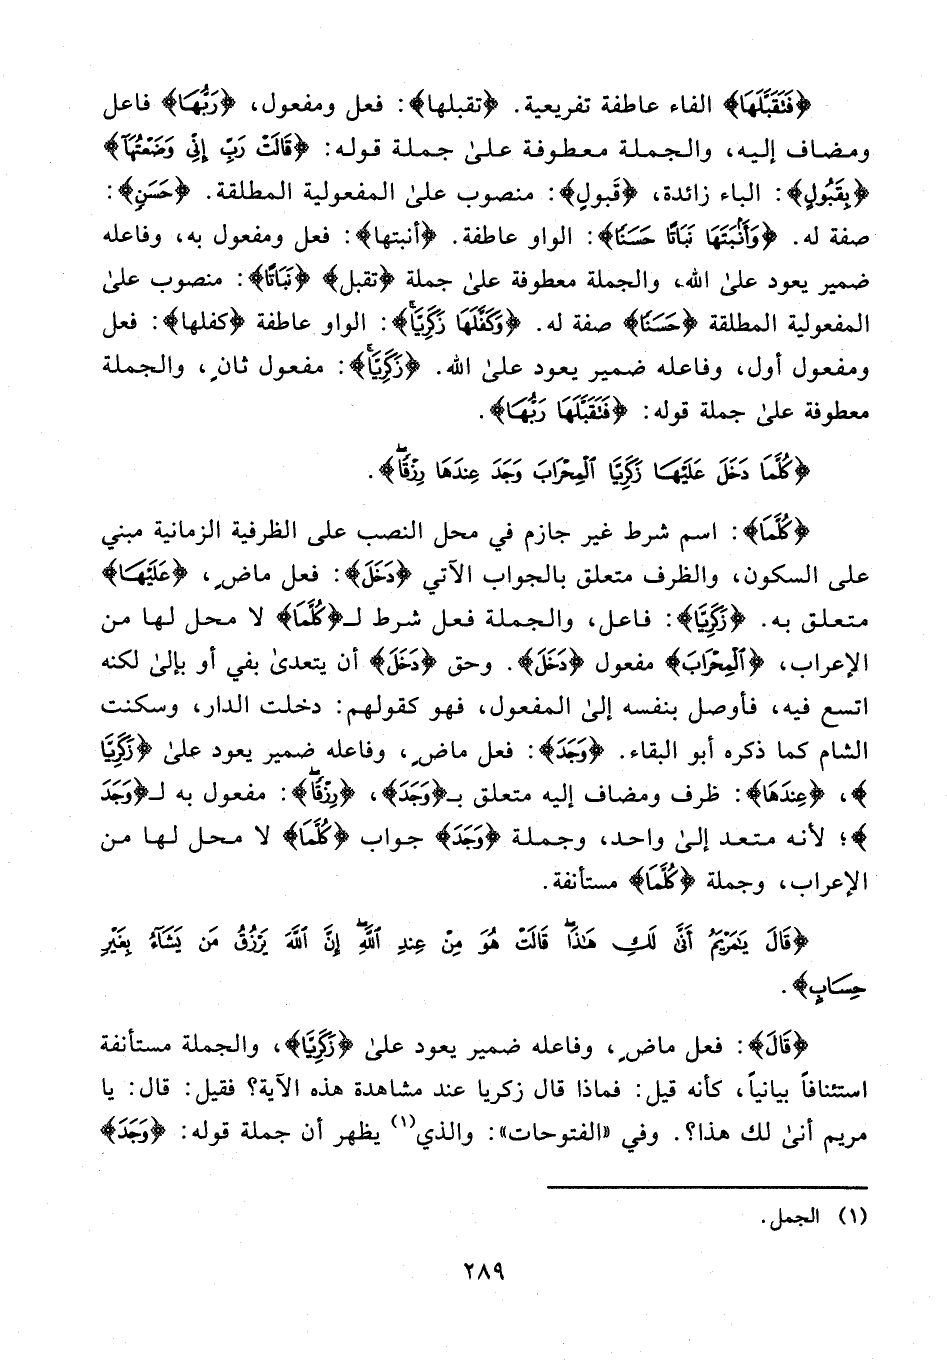 ﴿فَتَقَبَّلَهَا﴾ الفاء عاطفة تفريعية. ﴿تقبلها﴾: فعل ومفعول، ﴿رَبُّهَا﴾ فاعل
ومضاف إليه، والجملة معطوفة علىٰ جملة قوله: ﴿قَالَتْ رَبِّ إِنِّي وَضَعْتُهَآ﴾
﴿بِقَبُولٍ﴾: الباء زائدة، ﴿قَبولٍ﴾: منصوب علىٰ المفعولية المطلقة. ﴿حَسَنٍ﴾:
صفة له. ﴿وَأَنۢبَتَهَا نَبَاتًا حَسَنًا﴾: الواو عاطفة. ﴿أنبتها﴾: فعل ومفعول به، وفاعله
ضمير يعود علىٰ الله، والجملة معطوفة علىٰ جملة ﴿تقبل﴾ ﴿نَبَاتًا﴾: منصوب علىٰ
المفعولية المطلقة ﴿حَسَنًا﴾ صفة له. ﴿وَكَفَّلَهَا زَكَرِيَّاۚ﴾: الواو عاطفة ﴿كفلها﴾: فعل
ومفعول أول، وفاعله ضمير يعود علىٰ الله. ﴿زَكَرِيَّاۚ﴾: مفعول ثانٍ، والجملة
معطوفة علىٰ جملة قوله: ﴿فَتَقَبَّلَهَا رَبُّهَا﴾.
﴿كُلَّمَا دَخَلَ عَلَيْهَا زَكَرِيَّا ٱلْمِحْرَابَ وَجَدَ عِندَهَا رِزْقًاۖ﴾.
﴿كُلَّمَا﴾: اسم شرط غير جازم في محل النصب على الظرفية الزمانية مبني
على السكون، والظرف متعلق بالجواب الآتي ﴿دَخَلَ﴾: فعل ماضٍ، ﴿عَلَيْهَا﴾
متعلق به. ﴿زَكَرِيَّا﴾: فاعل، والجملة فعل شرط لـ﴿كُلَّمَا﴾ لا محل لها من
الإعراب، ﴿ٱلْمِحْرَابَ﴾ مفعول ﴿دَخَلَ﴾. وحق ﴿دَخَلَ﴾ أن يتعدىٰ بفي أو بإلىٰ لكنه
اتسع فيه، فأوصل بنفسه إلىٰ المفعول، فهو كقولهم: دخلت الدار، وسكنت
الشام كما ذكره أبو البقاء. ﴿وَجَدَ﴾: فعل ماضٍ، وفاعله ضمير يعود علىٰ ﴿زَكَرِيَّا
﴾، ﴿عِندَهَا﴾: ظرف ومضاف إليه متعلق بـ﴿وَجَدَ﴾، ﴿رِزْقًاۖ﴾: مفعول به لـ﴿وَجَدَ
﴾؛ لأنه متعد إلىٰ واحد، وجملة ﴿وَجَدَ﴾ جواب ﴿كُلَّمَا﴾ لا محل لها من
الإعراب، وجملة ﴿كُلَّمَا﴾ مستأنفة.
﴿قَالَ يَٰمَرْيَمُ أَنَّىٰ لَكِ هَٰذَاۖ قَالَتْ هُوَ مِنْ عِندِ ٱللَّهِۖ إِنَّ ٱللَّهَ يَرْزُقُ مَن يَشَآءُ بِغَيْرِ
حِسَابٍ﴾.
﴿قَالَ﴾: فعل ماضٍ، وفاعله ضمير يعود علىٰ ﴿زَكَرِيَّا﴾، والجملة مستأنفة
استئنافاً بيانياً، كأنه قيل: فماذا قال زكريا عند مشاهدة هذه الآية؟ فقيل: قال: يا
مريم أنىٰ لك هذا؟. وفي «الفتوحات»: والذي(١) يظهر أن جملة قوله: ﴿وَجَدَ﴾
(١) الجمل.
٢٨٩